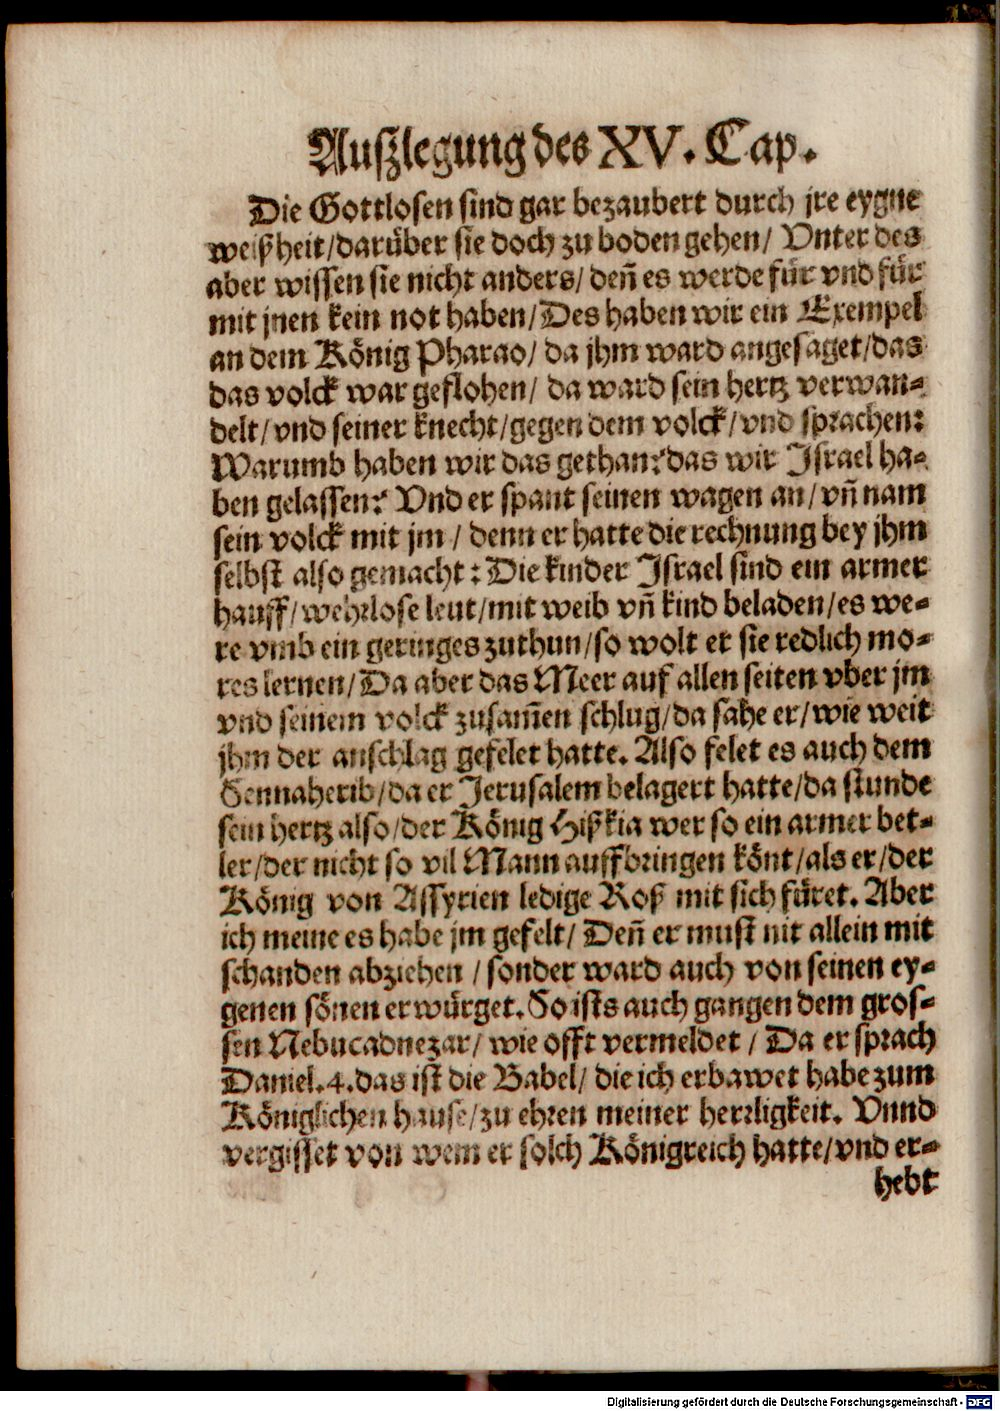 Auſzlegung des XV. Cap.
Die Gottloſen ſind gar bezaubert durch jre eygne
weißheit/darüber ſie doch zu boden gehen/ Vnter des
aber wiſſen ſie nicht anders/ deñ es werde für vnd für
mit jnen kein not haben/Des haben wir ein Exempel
an dem König Pharao/ da jhm ward angeſaget/das
das volck war geflohen/ da ward ſein hertz verwan-
delt/vnd ſeiner knecht/gegen dem volck/vnd ſprachen:
Warumb haben wir das gethan?das wir Iſrael ha-
ben gelaſſen? Vnd er ſpant ſeinen wagen an/vñ nam
ſein volck mit jm/ denn er hatte die rechnung bey jhm
ſelbſt alſo gemacht: Die kinder Iſrael ſind ein armer
hauff/wehrloſe leut/mit weib vñ kind beladen/es we-
re vmb ein geringes zuthun/ſo wolt er ſie redlich mo-
res lernen/Da aber das Meer auf allen ſeiten vber jm
vnd ſeinem volck zuſam̃en ſchlug/da ſahe er/wie weit
jhm der anſchlag gefelet hatte. Alſo felet es auch dem
Sennaherib/da er Jeruſalem belagert hatte/da ſtunde
ſein hertz alſo/der König Hißkia wer ſo ein armer bet-
ler/der nicht ſo vil Mann auffbringen könt/als er/der
König von Aſſyrien ledige Roß mit ſich füret. Aber
ich meine es habe jm gefelt/ Deñ er muſt nit allein mit
ſchanden abziehen /ſonder ward auch von ſeinen ey-
genen ſönen erwürget. So iſts auch gangen dem groſ-
ſen Nebucadnezar/ wie offt vermeldet / Da er ſprach
Daniel.4.das iſt die Babel/ die ich erbawet habe zum
Königlichen hauſe/zu ehren meiner herrligkeit. Vnnd
vergiſſet von wem er ſolch Königreich hatte/vnd er-
hebt
Digitalisierung gefördert durch die Deutsche Forschungsgemeinschaft - DFG